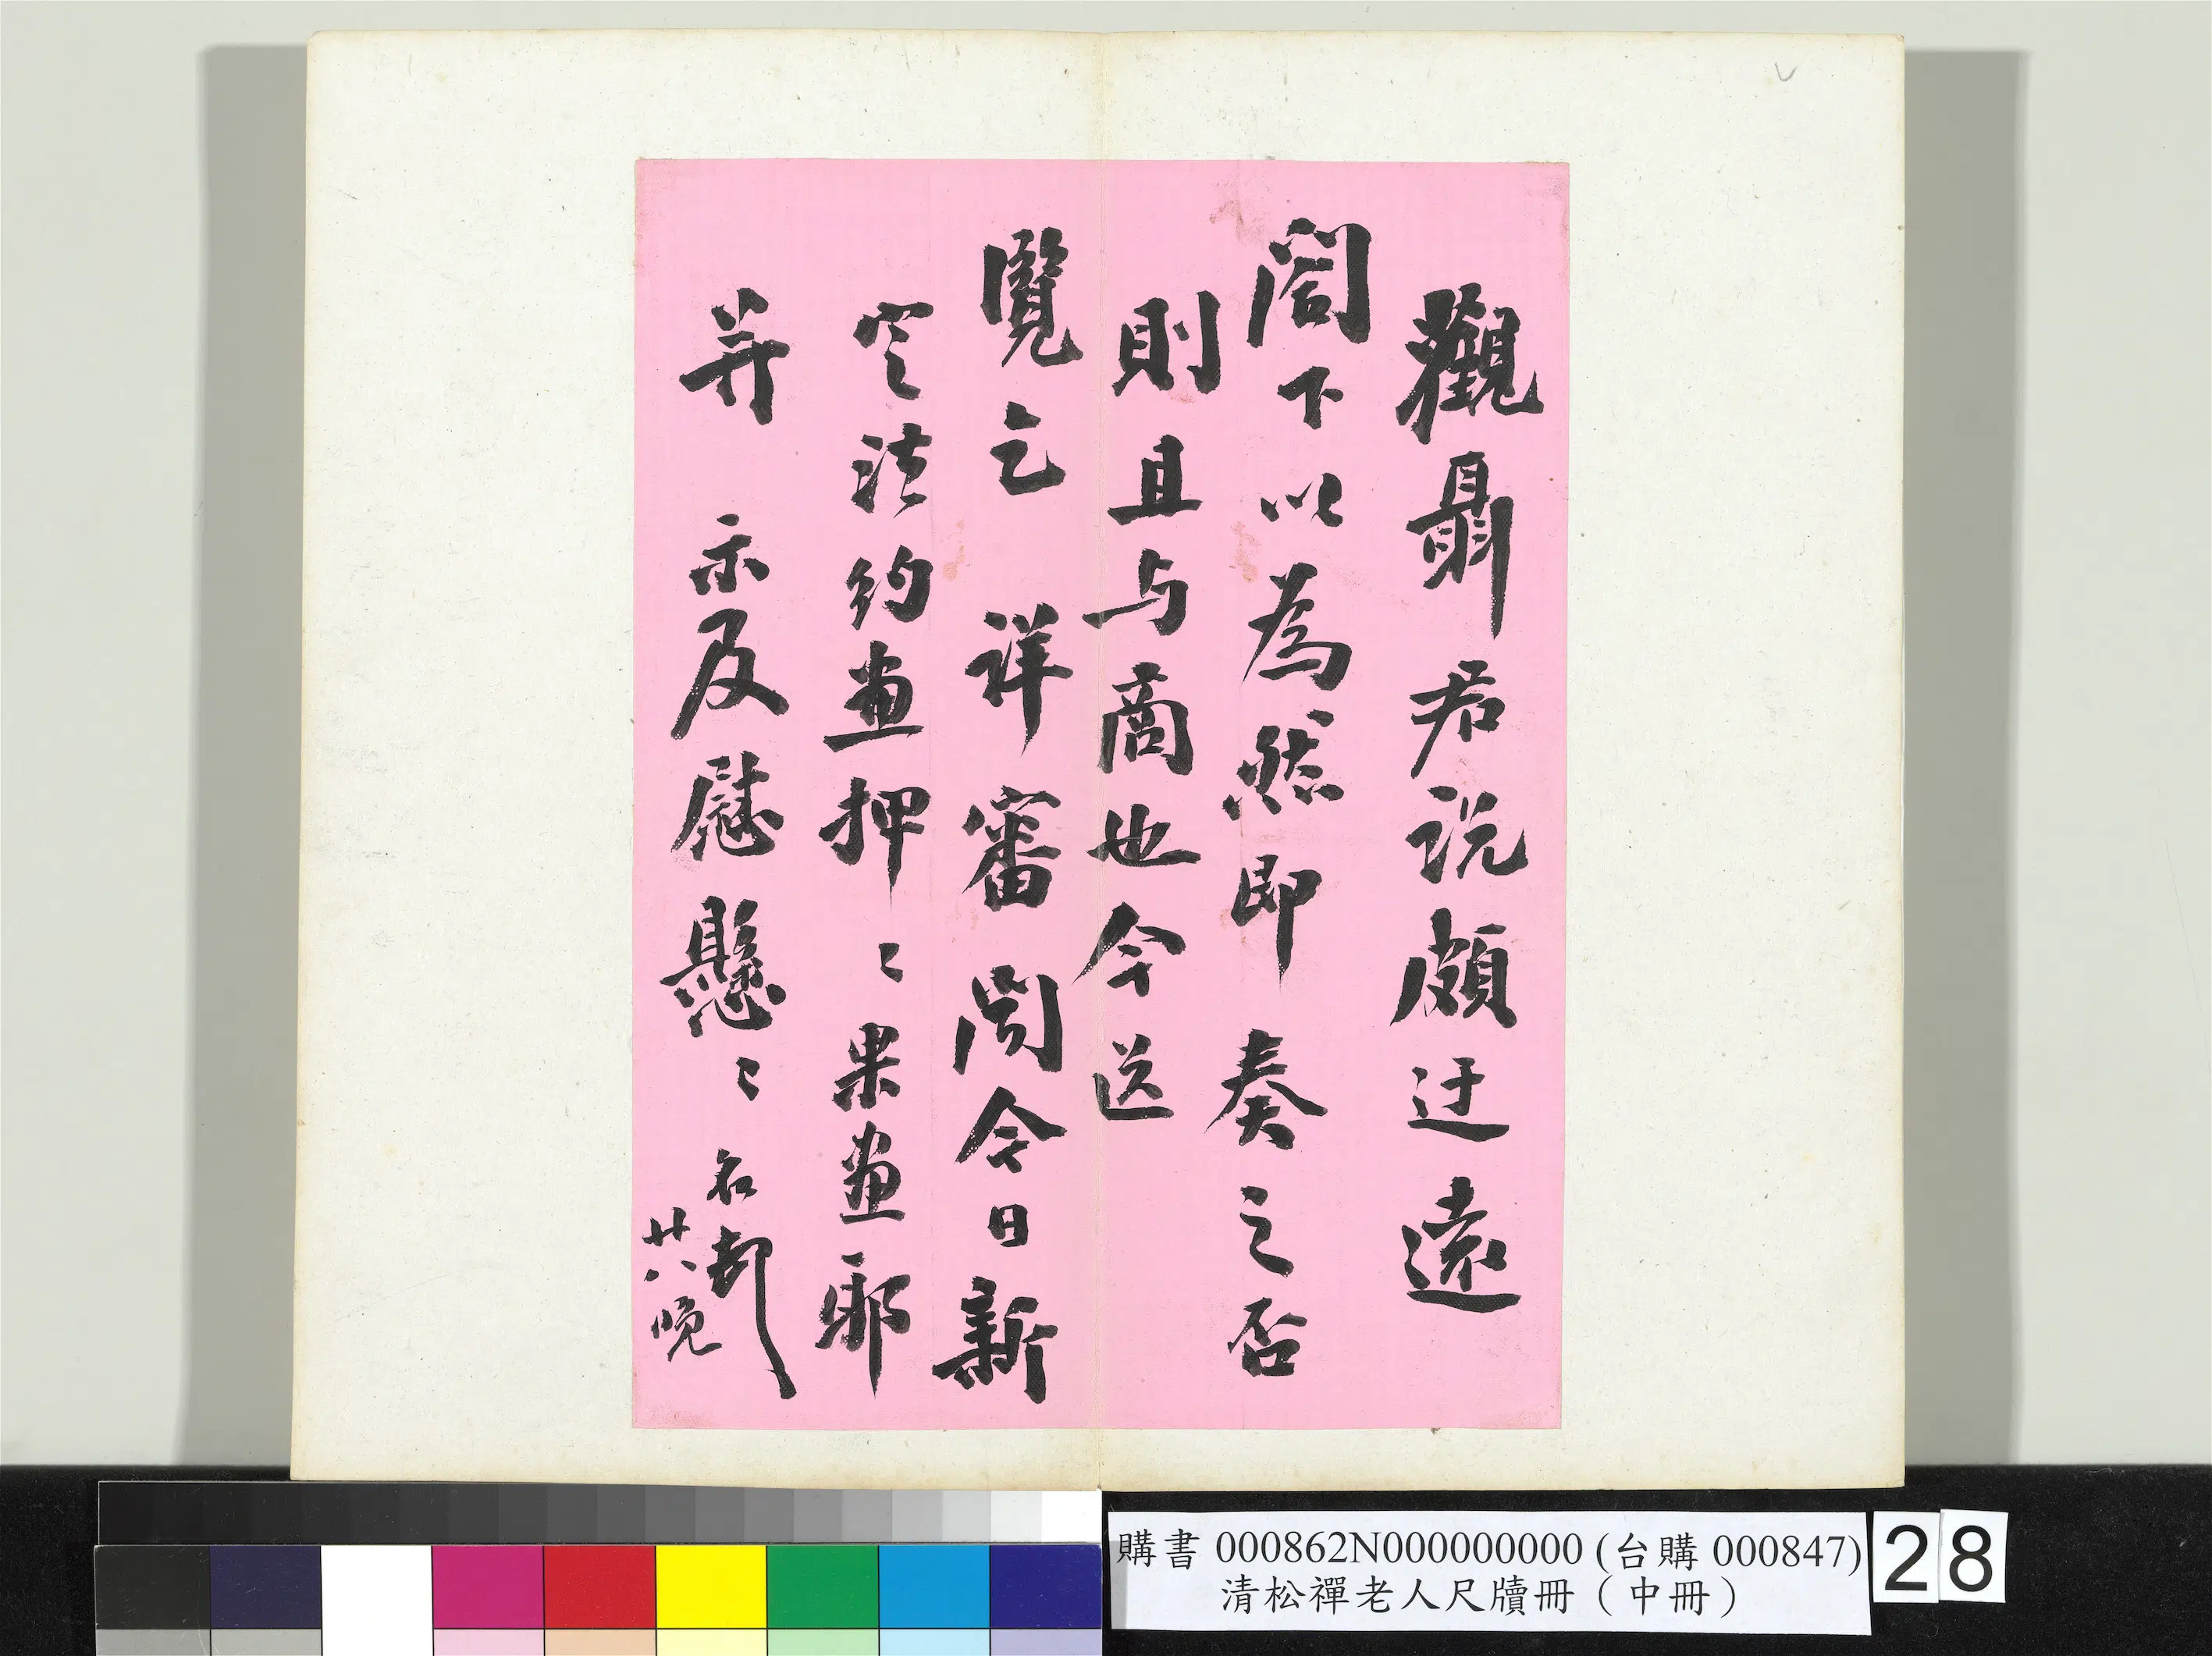 觀聶君説頗迂遠
閤下以為然即奏之否
則且与商也今送
覽乞 詳審聞今日新
定法約畫押〻果畫耶
并 示及慰懸〻 名
廿八晚
購書 000862N000000000 (台購 000847)
清松禪老人尺牘冊（中冊）
28